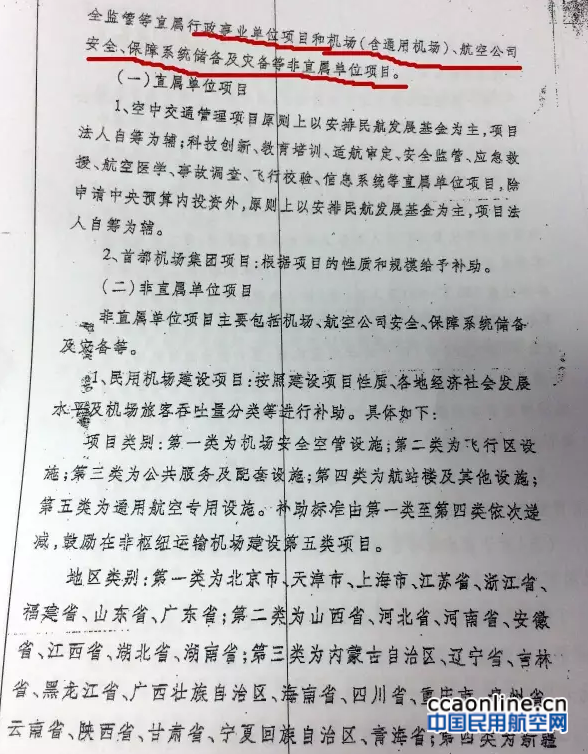 全监管等直属行政事业单位项目和机场(含通用机场)、航空公司
安全、保障系统储备及灾备等非直属单位项目。
(一)直属单位项目
1、空中交通管理项目原则上以安排民航发展基金为主,项目
法人自筹为辅;科技创新、教育培训、适航审定、安全监管、应急救
援、航空医学、事故调查、飞行校验、信息系统等直属单位项目,除
申请中央预算内投资外,原则上以安排民航发展基金为主,项目法
人自筹为辅。
2、首都机场集团项目:根据项目的性质和规模给予补助。
(二)非直属单位项目
非直属单位项目主要包括机场、航空公司安全、保障系统储备
及灾备等。
1、民用机场建设项目:按照建设项目性质、各地经济社会发展
水平及机场旅客吞吐量分类等进行补助。具体如下:
项目类别:第一类为机场安全空管设施;第二类为飞行区设
施;第三类为公共服务及配套设施;第四类为航站楼及其他设施;
第五类为通用航空专用设施。补助标准由第一类至第四类依次递
减,鼓励在非枢纽运输机场建设第五类项目。
地区类别:第一类为北京市、天津市、上海市、江苏省、浙江省、
福建省、山东省、广东省;第二类为山西省、河北省、河南省、安徽
省、江西省、湖北省、湖南省;第三类为内蒙古自治区、辽宁省、吉林
省、黑龙江省、广西壮族自治区、海南省、四川省、重庆市、贵州省、
云南省、陕西省、甘肃省、宁夏回族自治区、青海省;第四类为新疆
ccaonline.cn
中国民用航空网